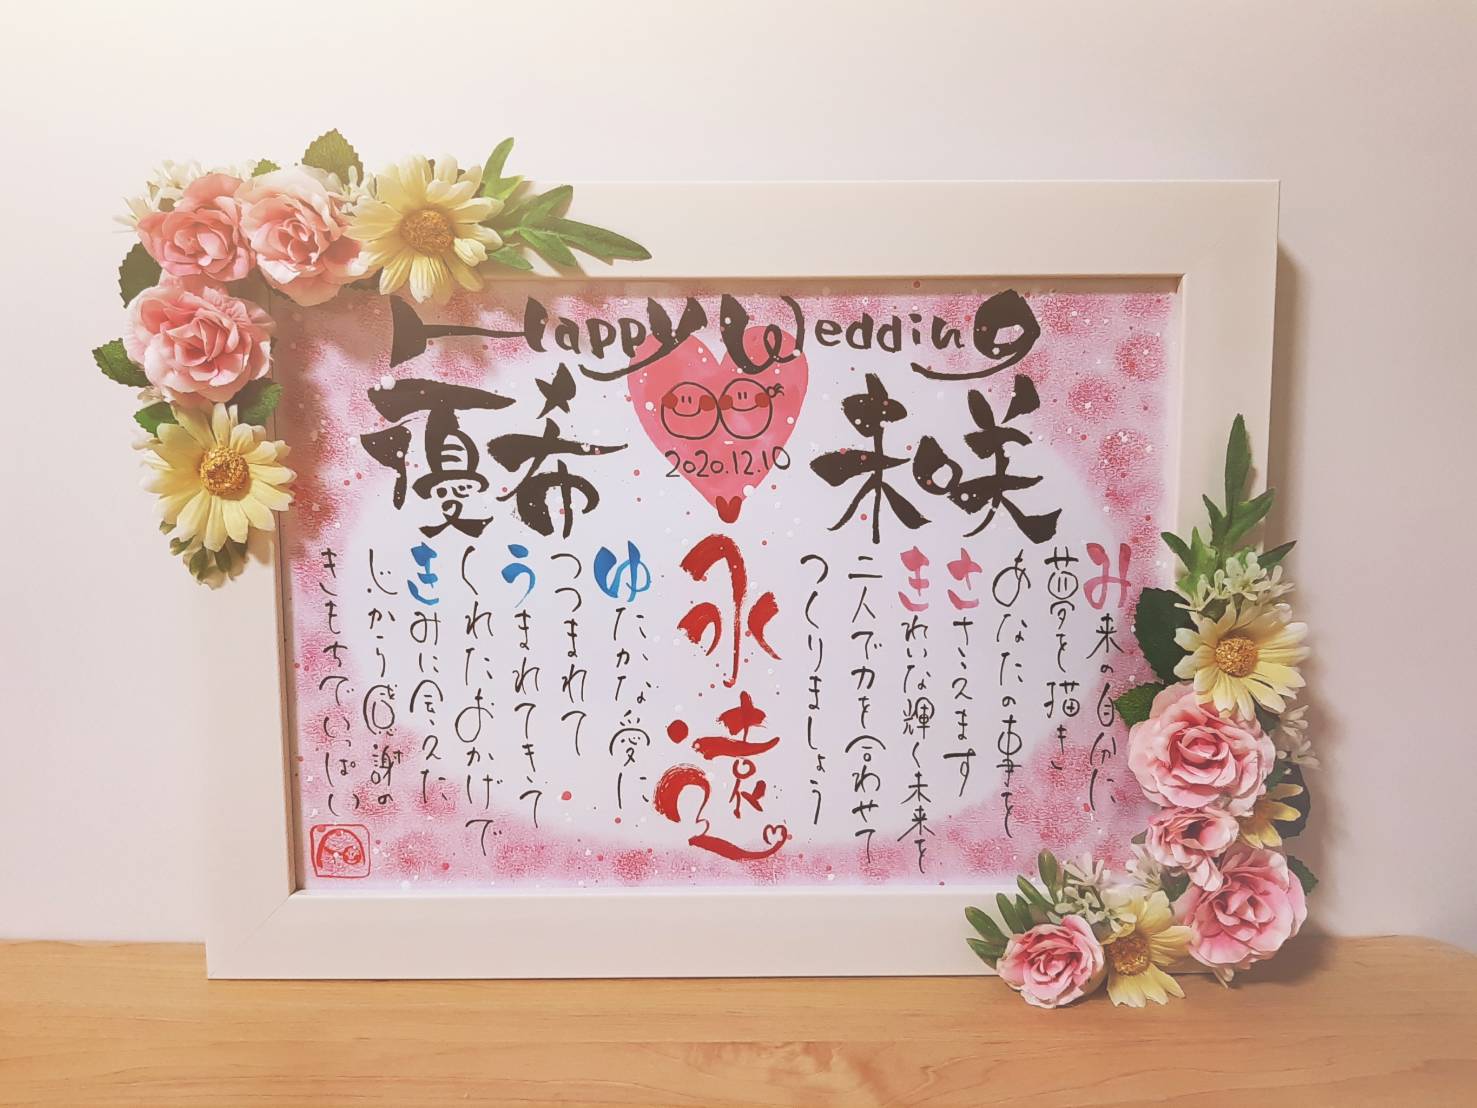 Happy Wedding
優希
未咲
2020.12.10
永遠
み来の自分に
夢を描き
あなたの事を
ささえます
きれいな輝く未来を
二人で力を合わせて
つくりましょう
ゆたかな愛に
つつまれて
うまれてきて
くれたおかげで
きみに会えた
じかう感謝の
きもちでいっぱい